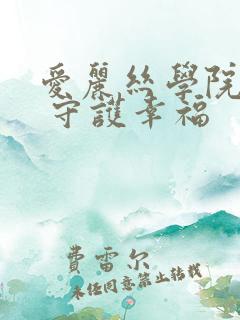 愛麗絲學院
守護幸福
費雷尔
未经同意禁止转载